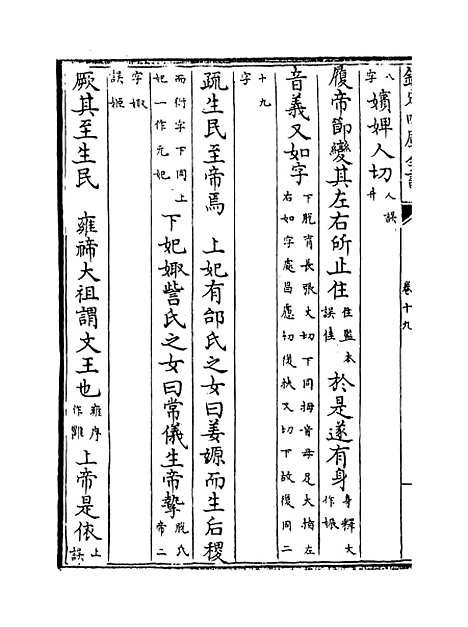 欽定四庫全書
卷十九
八字嬪婢人切人誤弁
履帝節變其左右所止住住監本誤佳於是遂有身身釋文作娠
音義又如字下脱肓長張丈切下同拇音母足大指左右如字處昌慮切復扶又切下故復同二
十九字
疏生民至帝焉 上妃有邰氏之女曰姜嫄而生后稷
而衍字下同上妃一作元妃下妃娵訾氏之女曰常儀生帝摯脱氏帝二
字娵誤姬
厥其至生民 雍禘大祖謂文王也雍序作雝上帝是依上誤